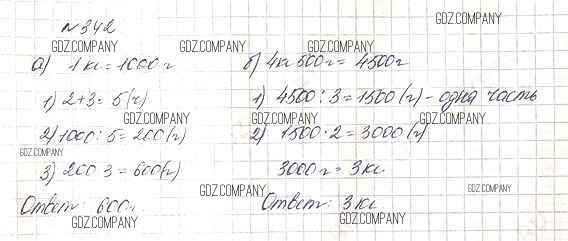 №342
GDZ.COMPANY
GDZ.COMPANY GDZ.COMPANY GDZ.COMPANY
а) 1 кг = 1000 г
1) 2+3 = 5 (г)
GDZ.COMPANY
2) 1000 : 5 = 200 (г)
GDZ.COMPANY
3) 200 3 = 600 (г)
Ответ: 600г
GDZ.COMPANY
б) 4кг 500г = 4500г
1) 4500 : 3 = 1500 (г) - одна часть
GDZ.COMPANY GDZ.COMPANY
2) 1500 · 2 = 3000 (г)
3000г = 3кг
GDZ.COMPANY GDZ.COMPANY
Ответ: 3кг
GDZ.COMPANY